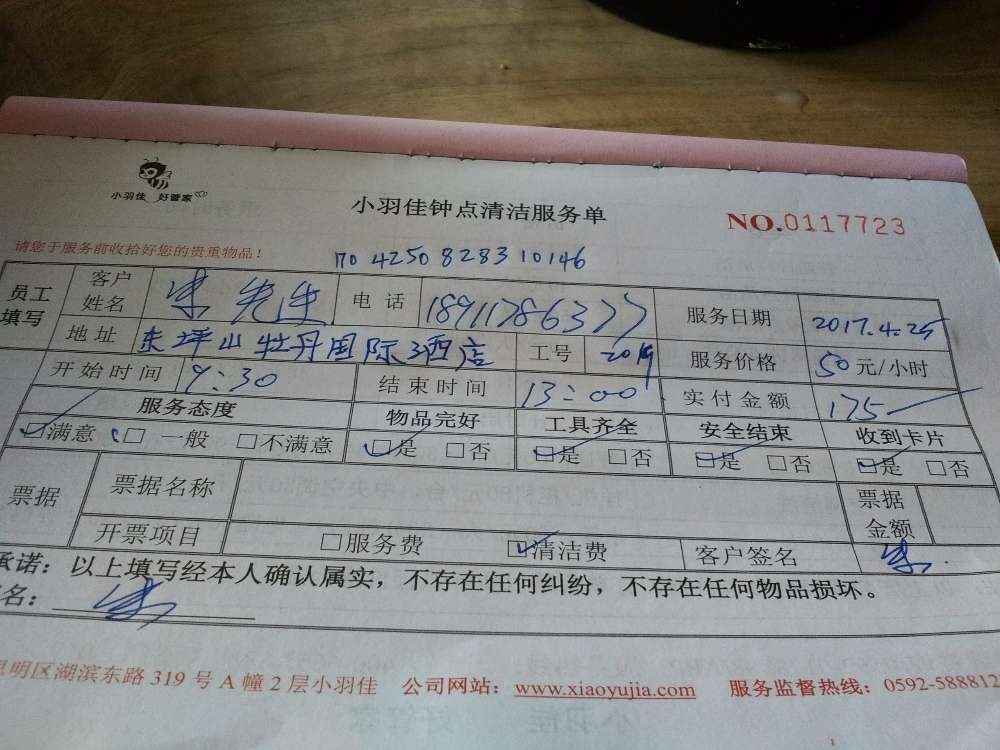 小羽佳 好管家
小羽佳钟点清洁服务单
NO.0117723
请您于服务前收拾好您的贵重物品!
170 4250 8283 10146
员工填写 客户姓名 朱先生 电话 18911786377 服务日期 2017.4.25
地址 东坪山牡丹国际酒店 工号 2019 服务价格 50元/小时
开始时间 9:30 结束时间 13:00 实付金额 175
服务态度 物品完好 工具齐全 安全结束 收到卡片
☑满意 □一般 □不满意 ☑是 □否 ☑是 □否 ☑是 □否 ☑是 □否
票据 票据名称 票据金额
开票项目 □服务费 ☑清洁费 客户签名 朱
承诺:以上填写经本人确认属实,不存在任何纠纷,不存在任何物品损坏。
名: 朱
思明区湖滨东路 319 号 A 幢 2 层小羽佳 公司网站:www.xiaoyujia.com 服务监督热线:0592-588812